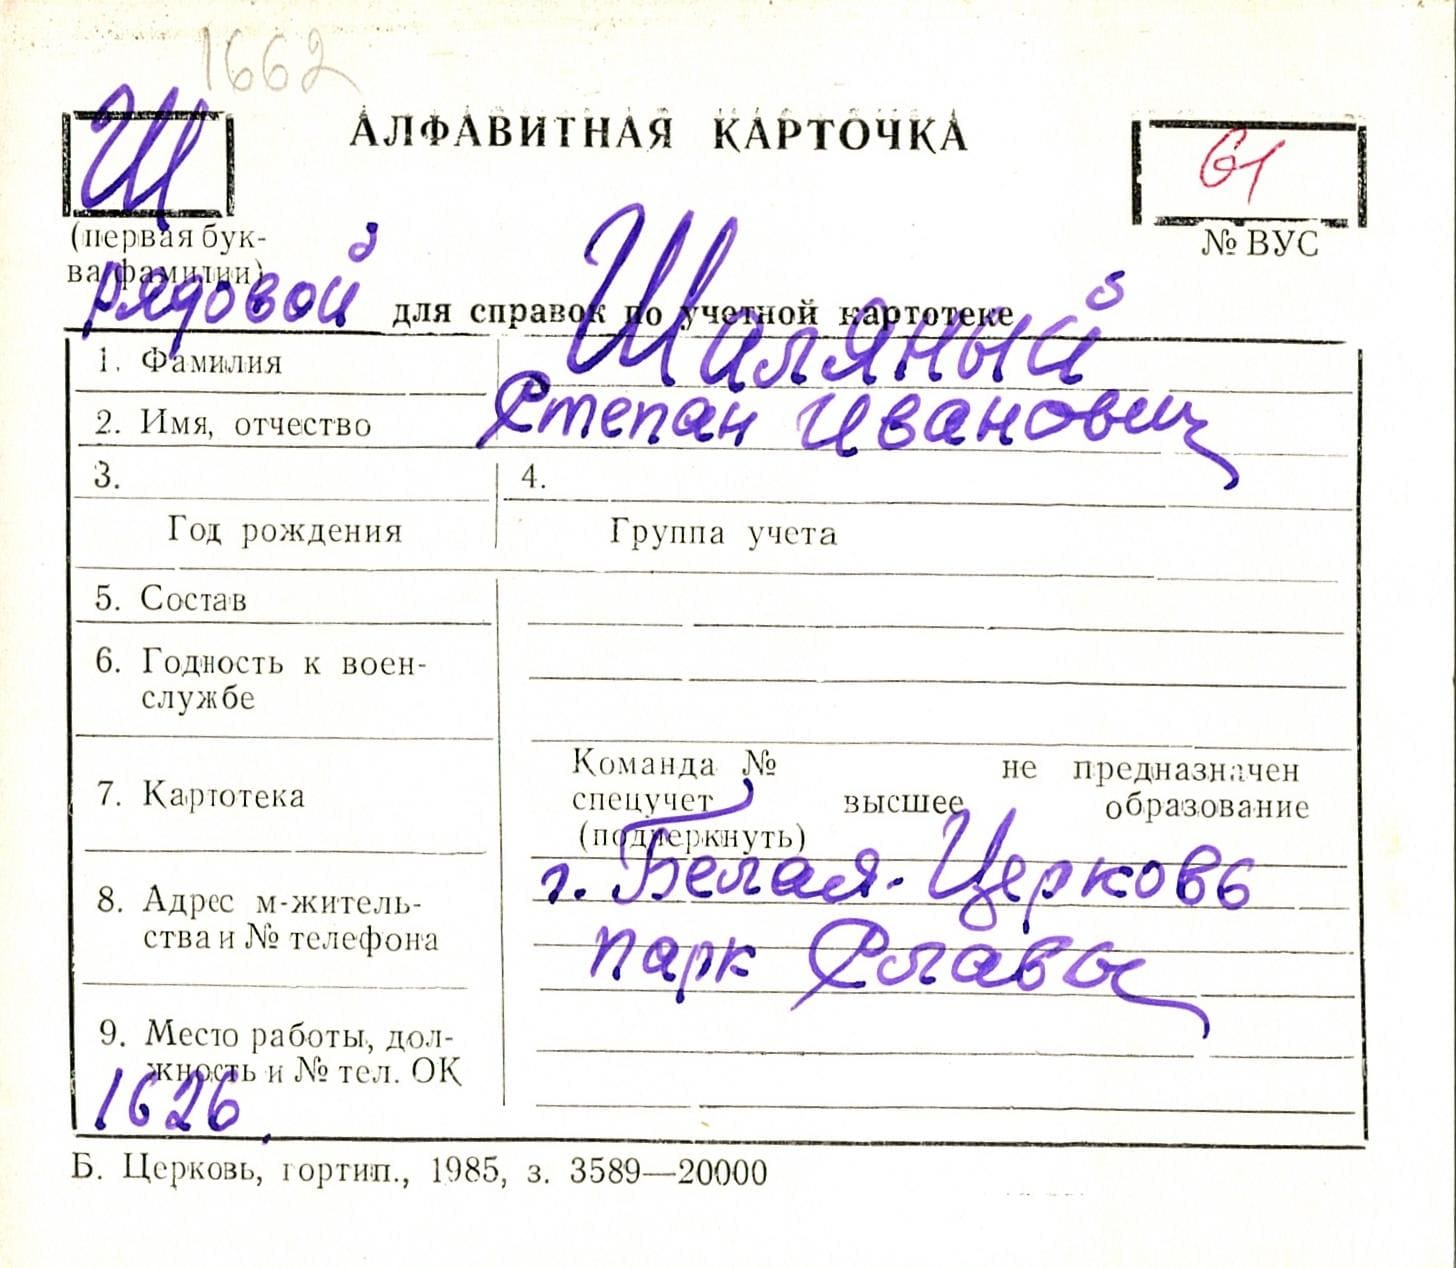 1662
Ш
АЛФАВИТНАЯ КАРТОЧКА
61
(первая бук-
ва фамилии)
№ ВУС
рядовой
для справок по учетной картотеке
1. Фамилия Шаляный
2. Имя, отчество Степан Иванович
3. 4.
Год рождения Группа учета
5. Состав
6. Годность к воен-
службе
7. Картотека
Команда № не предназначен
спецучет высшее образование
(подчеркнуть)
8. Адрес м-житель-
ства и № телефона
г. Белая-Церковь
парк Славы
9. Место работы, дол-
жность и № тел. ОК
1626
Б. Церковь, гортип., 1985, з. 3589—20000